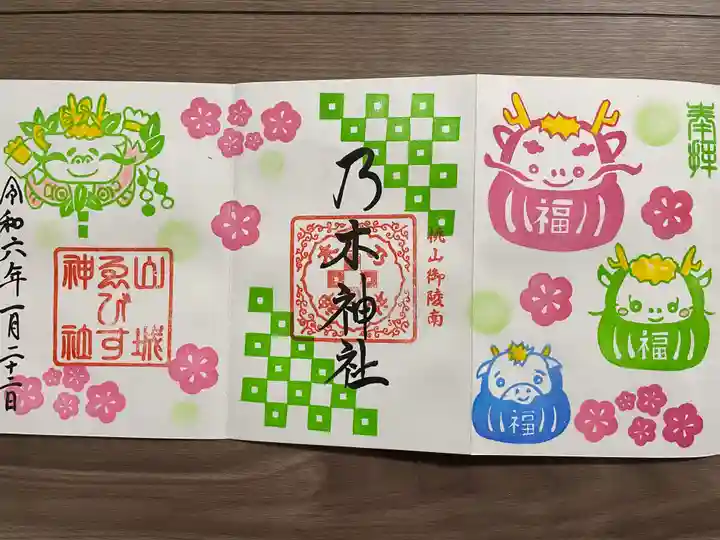 奉拝
福
福
福
桃山御陵南
乃木神社
山城
ゑびす
神社
令和六年一月二十二日